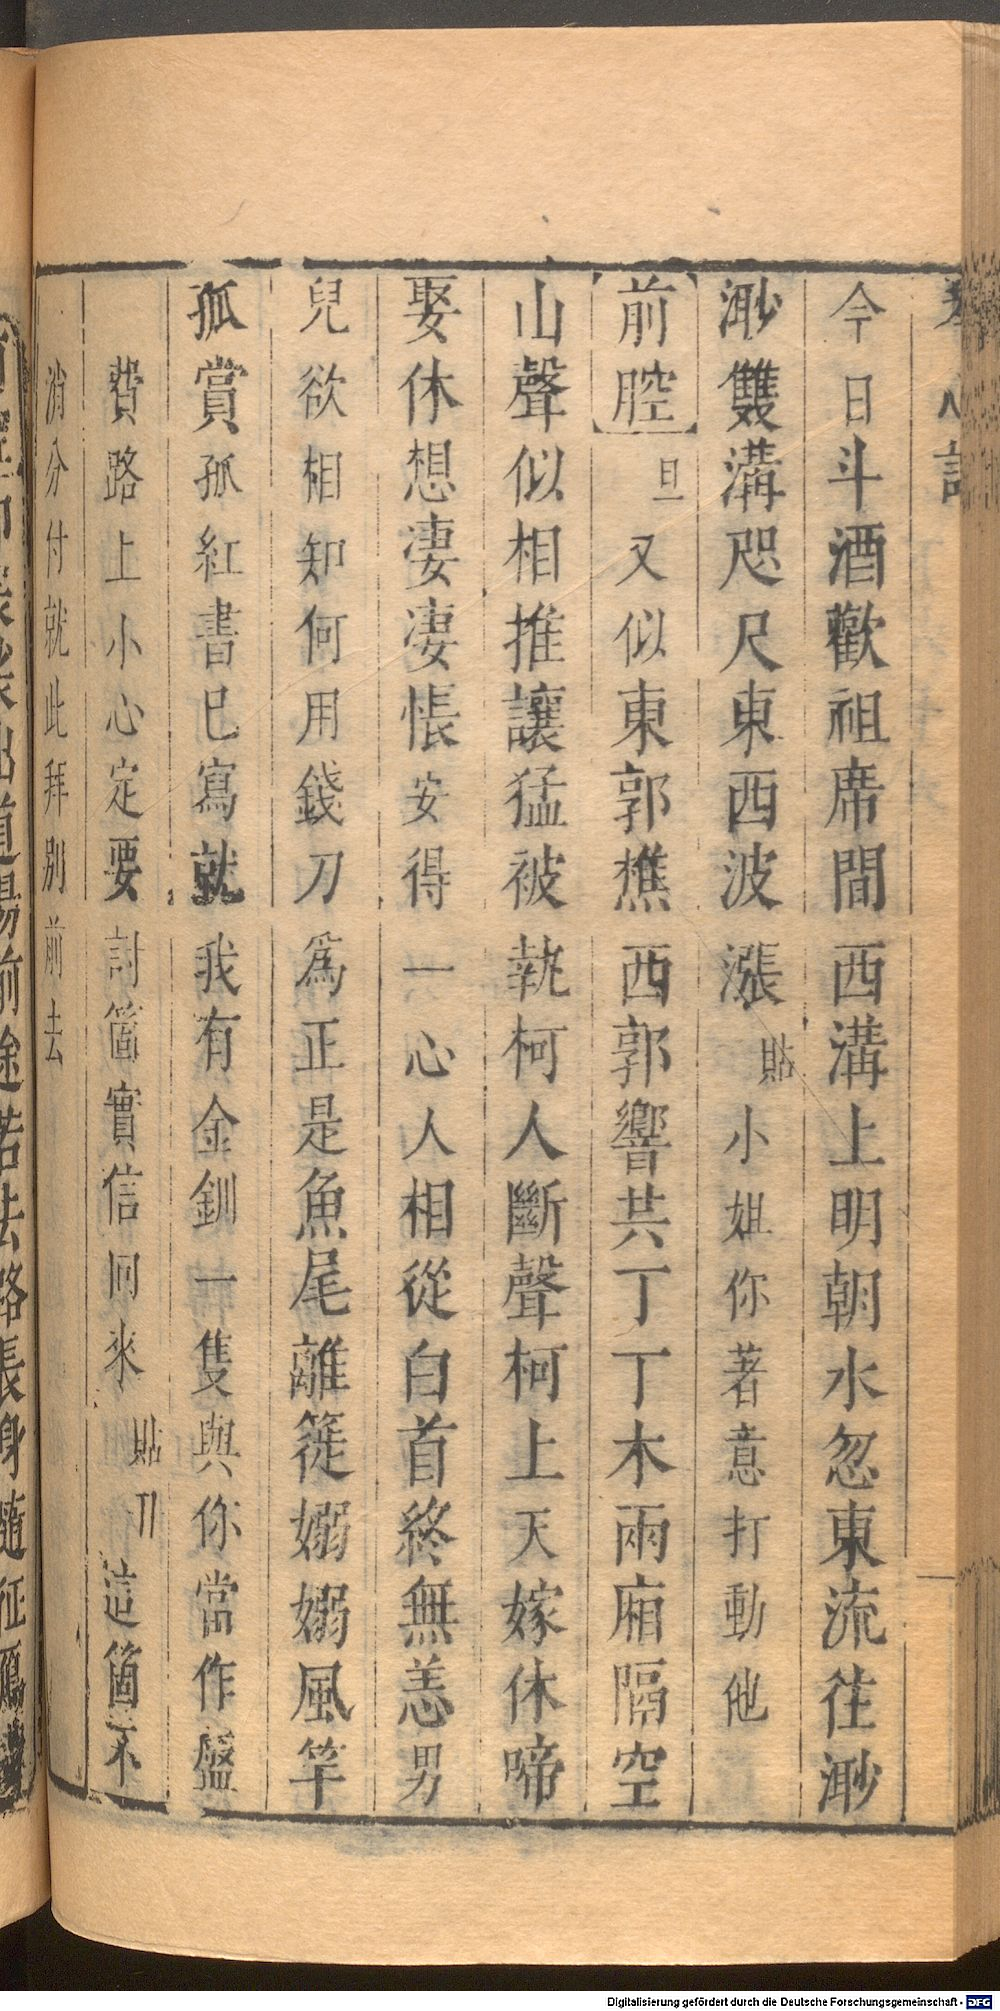 今日斗酒歡祖席間西溝上明朝水忽東流徃渺
渺雙溝咫尺東西波漲貼小姐你著意打動他
前腔旦又似東郭樵西郭響共丁丁木兩廂隔空
山聲似相推讓猛被執柯人斷聲柯上天嫁休啼
娶休想淒淒悵安得一心人相從白首終無恙男
兒欲相知何用錢刀為正是魚尾離簁嫋嫋風竿
孤賞孤紅書已寫就我有金釧一隻與你當作盤
費路上小心定要討箇實信囘來貼丑這箇不
消分付就此拜別前去
Digitalisierung gefördert durch die Deutsche Forschungsgemeinschaft - DFG